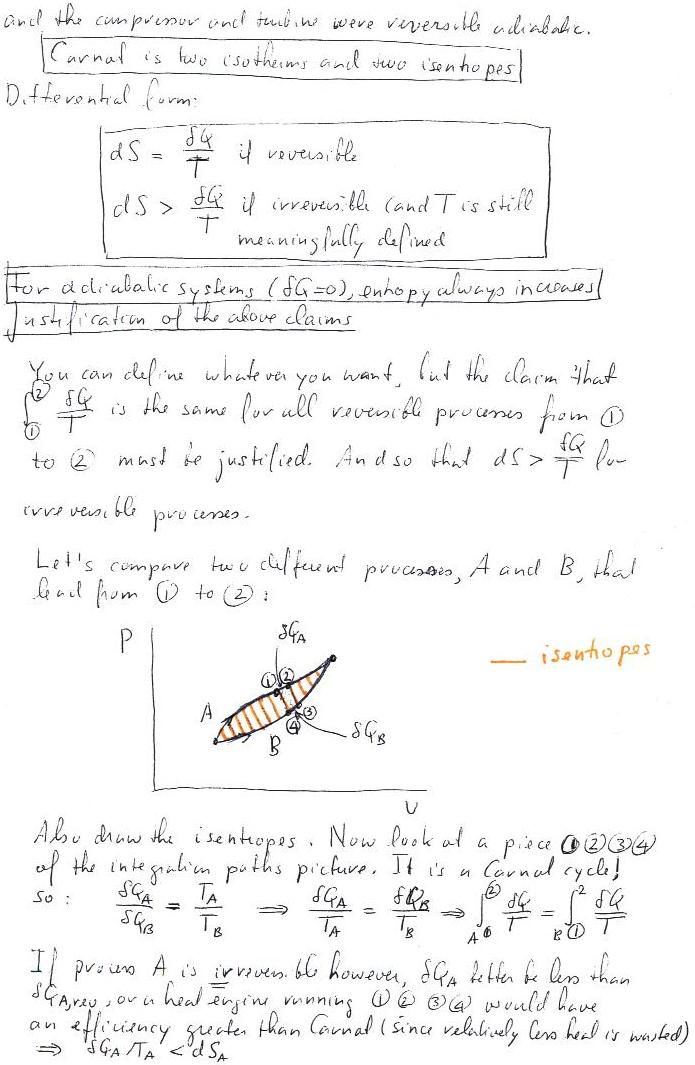 and the compressor and turbine were reversible adiabatic.
Carnot is two isotherms and two isentropes
Differential form:
dS = δQ/T if reversible
dS > δQ/T if irreversible (and T is still
meaningfully defined
For adiabatic systems (δQ=0), entropy always increases
Justification of the above claims
You can define whatever you want, but the claim that
∫①② δQ/T is the same for all reversible processes from ①
to ② must be justified. And so that dS > δQ/T for
irreversible processes.
Let's compare two different processes, A and B, that
lead from ① to ②:
P
δQA
— isentropes
① ②
A
③
④
B
δQB
U
Also draw the isentropes. Now look at a piece ①②③④
of the integration paths picture. It is a Carnot cycle!
so: δQA/δQB = TA/TB ⇒ δQA/TA = δQB/TB ⇒ A∫①② δQ/T = B∫①2 δQ/T
If process A is irreversible however, δQA better be less than
δQA,rev, or a heat engine running ①②③④ would have
an efficiency greater than Carnot (since relatively less heat is wasted)
⇒ δQA/TA < dSA